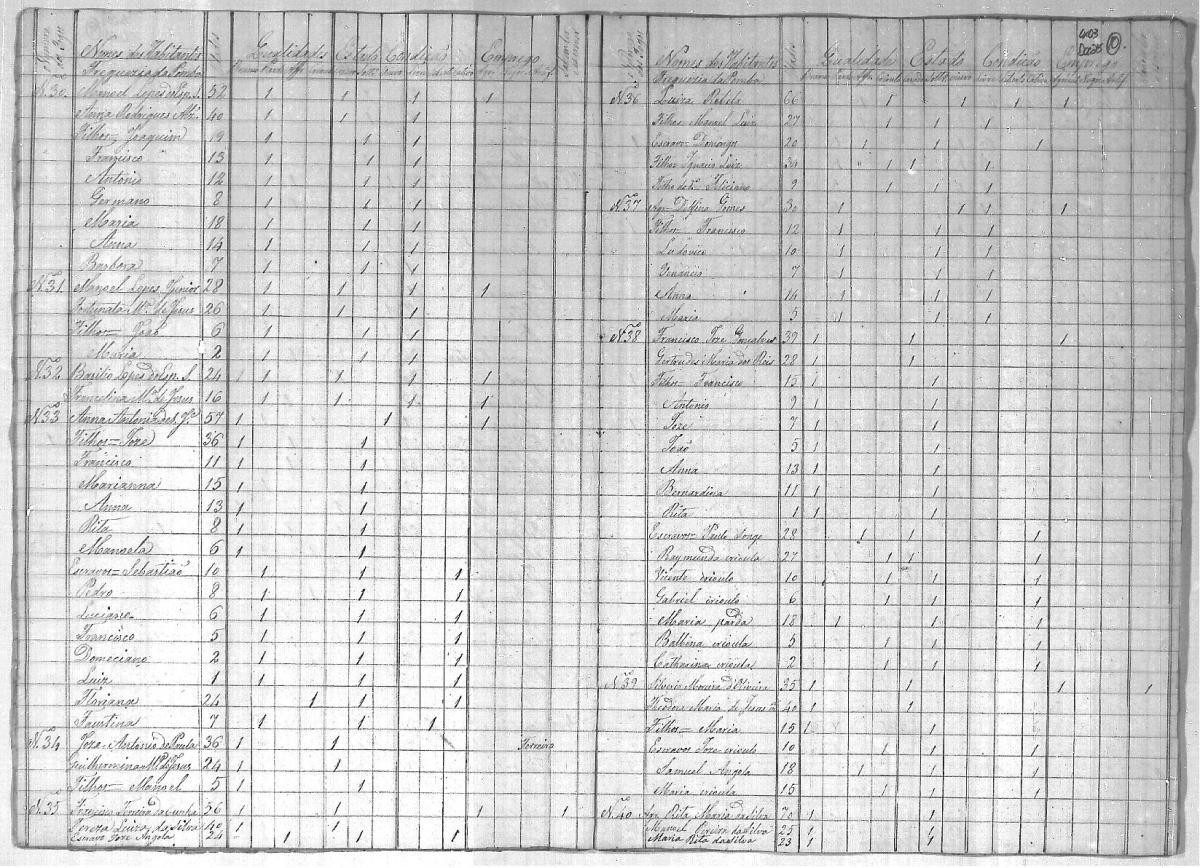 403
Doc 35
10
Nomes dos Habitantes
Freguezia da Pomba
Qualidades Estado Condição Emprego
N.º 30. Manoel Lopes do Esp. S. 52 1 1 1 1
Anna Rodrigues 40 1 1 1
Filhos = Joaquim 19 1 1 1
Francisco 13 1 1 1
Antonio 12 1 1 1
Germano 8 1 1 1
Maria 18 1 1 1
Anna 14 1 1 1
Barbora 7 1 1 1
N.º 31. Manoel Lopes Junior 28 1 1 1 1
Fortunata M.ª de Jesus 26 1 1 1
Filhos = João 6 1 1 1
Maria 2 1 1 1
N.º 32 Basilio Lopes do Esp. S. 24 1 1 1 1
Francelina M.ª de Jesus 16 1 1 1 1
N.º 33 Anna Antonia de 57 1 1 1
Filhos = Joze 36 1 1
Francisco 11 1 1
Marianna 15 1 1
Anna 13 1 1
Rita 8 1 1
Manoela 6 1 1
Escravos = Sebastião 10 1 1 1
Pedro 8 1 1 1
Luciano 6 1 1 1
Francisco 5 1 1 1
Domeciano 2 1 1 1
Luiz 1 1 1 1
Floriana 24 1 1 1
Faustina 7 1 1 1
N.º 34 Joze Antonio de Paula 36 1 1 Ferreiro
Guilhermina M.ª de Jesus 24 1 1
Filhos = Manoel 5 1 1
N.º 35 Pereira da Cunha 56 1 1 1 1
Tereza Luiza da Silva 40 1 1
Escravo Joze Angola 24 1 1 1
Nomes dos Habitantes
Freguezia da Pomba
Qualidade Estado Condição Emprego
N.º 36 Luiza Rabela 66 1 1 1 1
Filhos Manoel Luiz 27 1 1 1
Escravo = Domingos 20 1 1 1
Filhos Ignacio Luiz 30 1 1 1
Filho de Feliciano 9 1 1 1
N.º 37 Agr. = Delfina Gomes 30 1 1 1 1
Filhos = Francisco 12 1 1 1
Ludovico 10 1 1 1
Venancio 7 1 1 1
Anna 14 1 1 1
Maria 5 1 1 1
N.º 38 Francisco Joze Gonçalves 39 1 1 1
Gertrudes Maria dos Reis 28 1 1
Filhos = Francisco 15 1 1
Antonio 9 1 1
Joze 7 1 1
João 5 1 1
Anna 13 1 1
Bernardina 11 1 1
Rita 1 1 1
Escravos = Paulo Congo 28 1 1 1
Raymunda crioula 27 1 1 1
Vicente crioulo 10 1 1 1
Gabriel crioulo 6 1 1 1
Maria parda 18 1 1 1
Balbina crioula 5 1 1 1
Catharina crioula 2 1 1 1
N.º 39 Silverio Moreira d'Oliveira 35 1 1 1 1
Theodora Maria de Jesus 40 1 1
Filhos = Maria 15 1 1
Escravos Joze crioulo 10 1 1 1
Samuel Angola 18 1 1 1
Maria crioula 15 1 1 1
N.º 40 Agr. Rita Maria da Silva 70 1 1 1
Manoel Pereira da Silva 25 1 1
Maria Rita da Silva 23 1 1